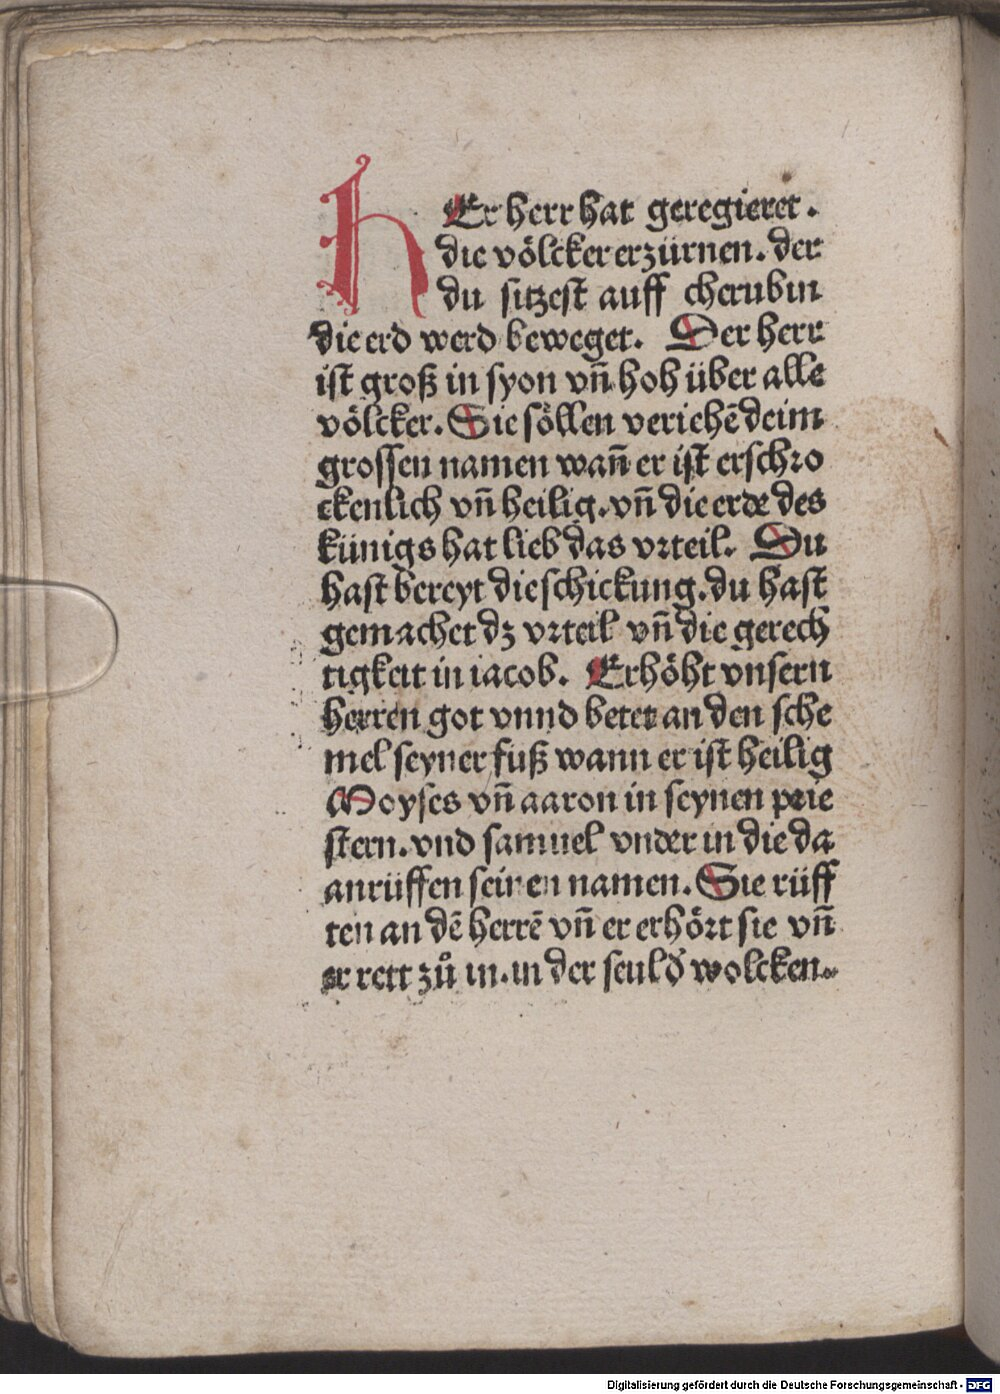 hEr herr hat geregieret.
die völcker erzürnen. der
du sitzest auff cherubin
die erd werd beweget. Der herr
ist groß in syon vn̄ hoh über alle
völcker. Sie söllen veriehē deim
grossen namen wan̄ er ist erschro
ckenlich vn̄ heilig. vn̄ die erde des
künigs hat lieb das vrteil. Du
hast bereyt die schickung. du hast
gemachet dz vrteil vn̄ die gerech
tigkeit in iacob. Erhöht vnsern
herren got vnnd betet an den sche
mel seyner fuß wann er ist heilig
Moyses vn̄ aaron in seynen prie
stern. vnd samuel vnder in die da
anrüffen seinen namen. Sie rüff
ten an dē herrē vn̄ er erhört sie vn̄
er rett zů in. in der seul d̕ wolcken.
Digitalisierung gefördert durch die Deutsche Forschungsgemeinschaft - DFG